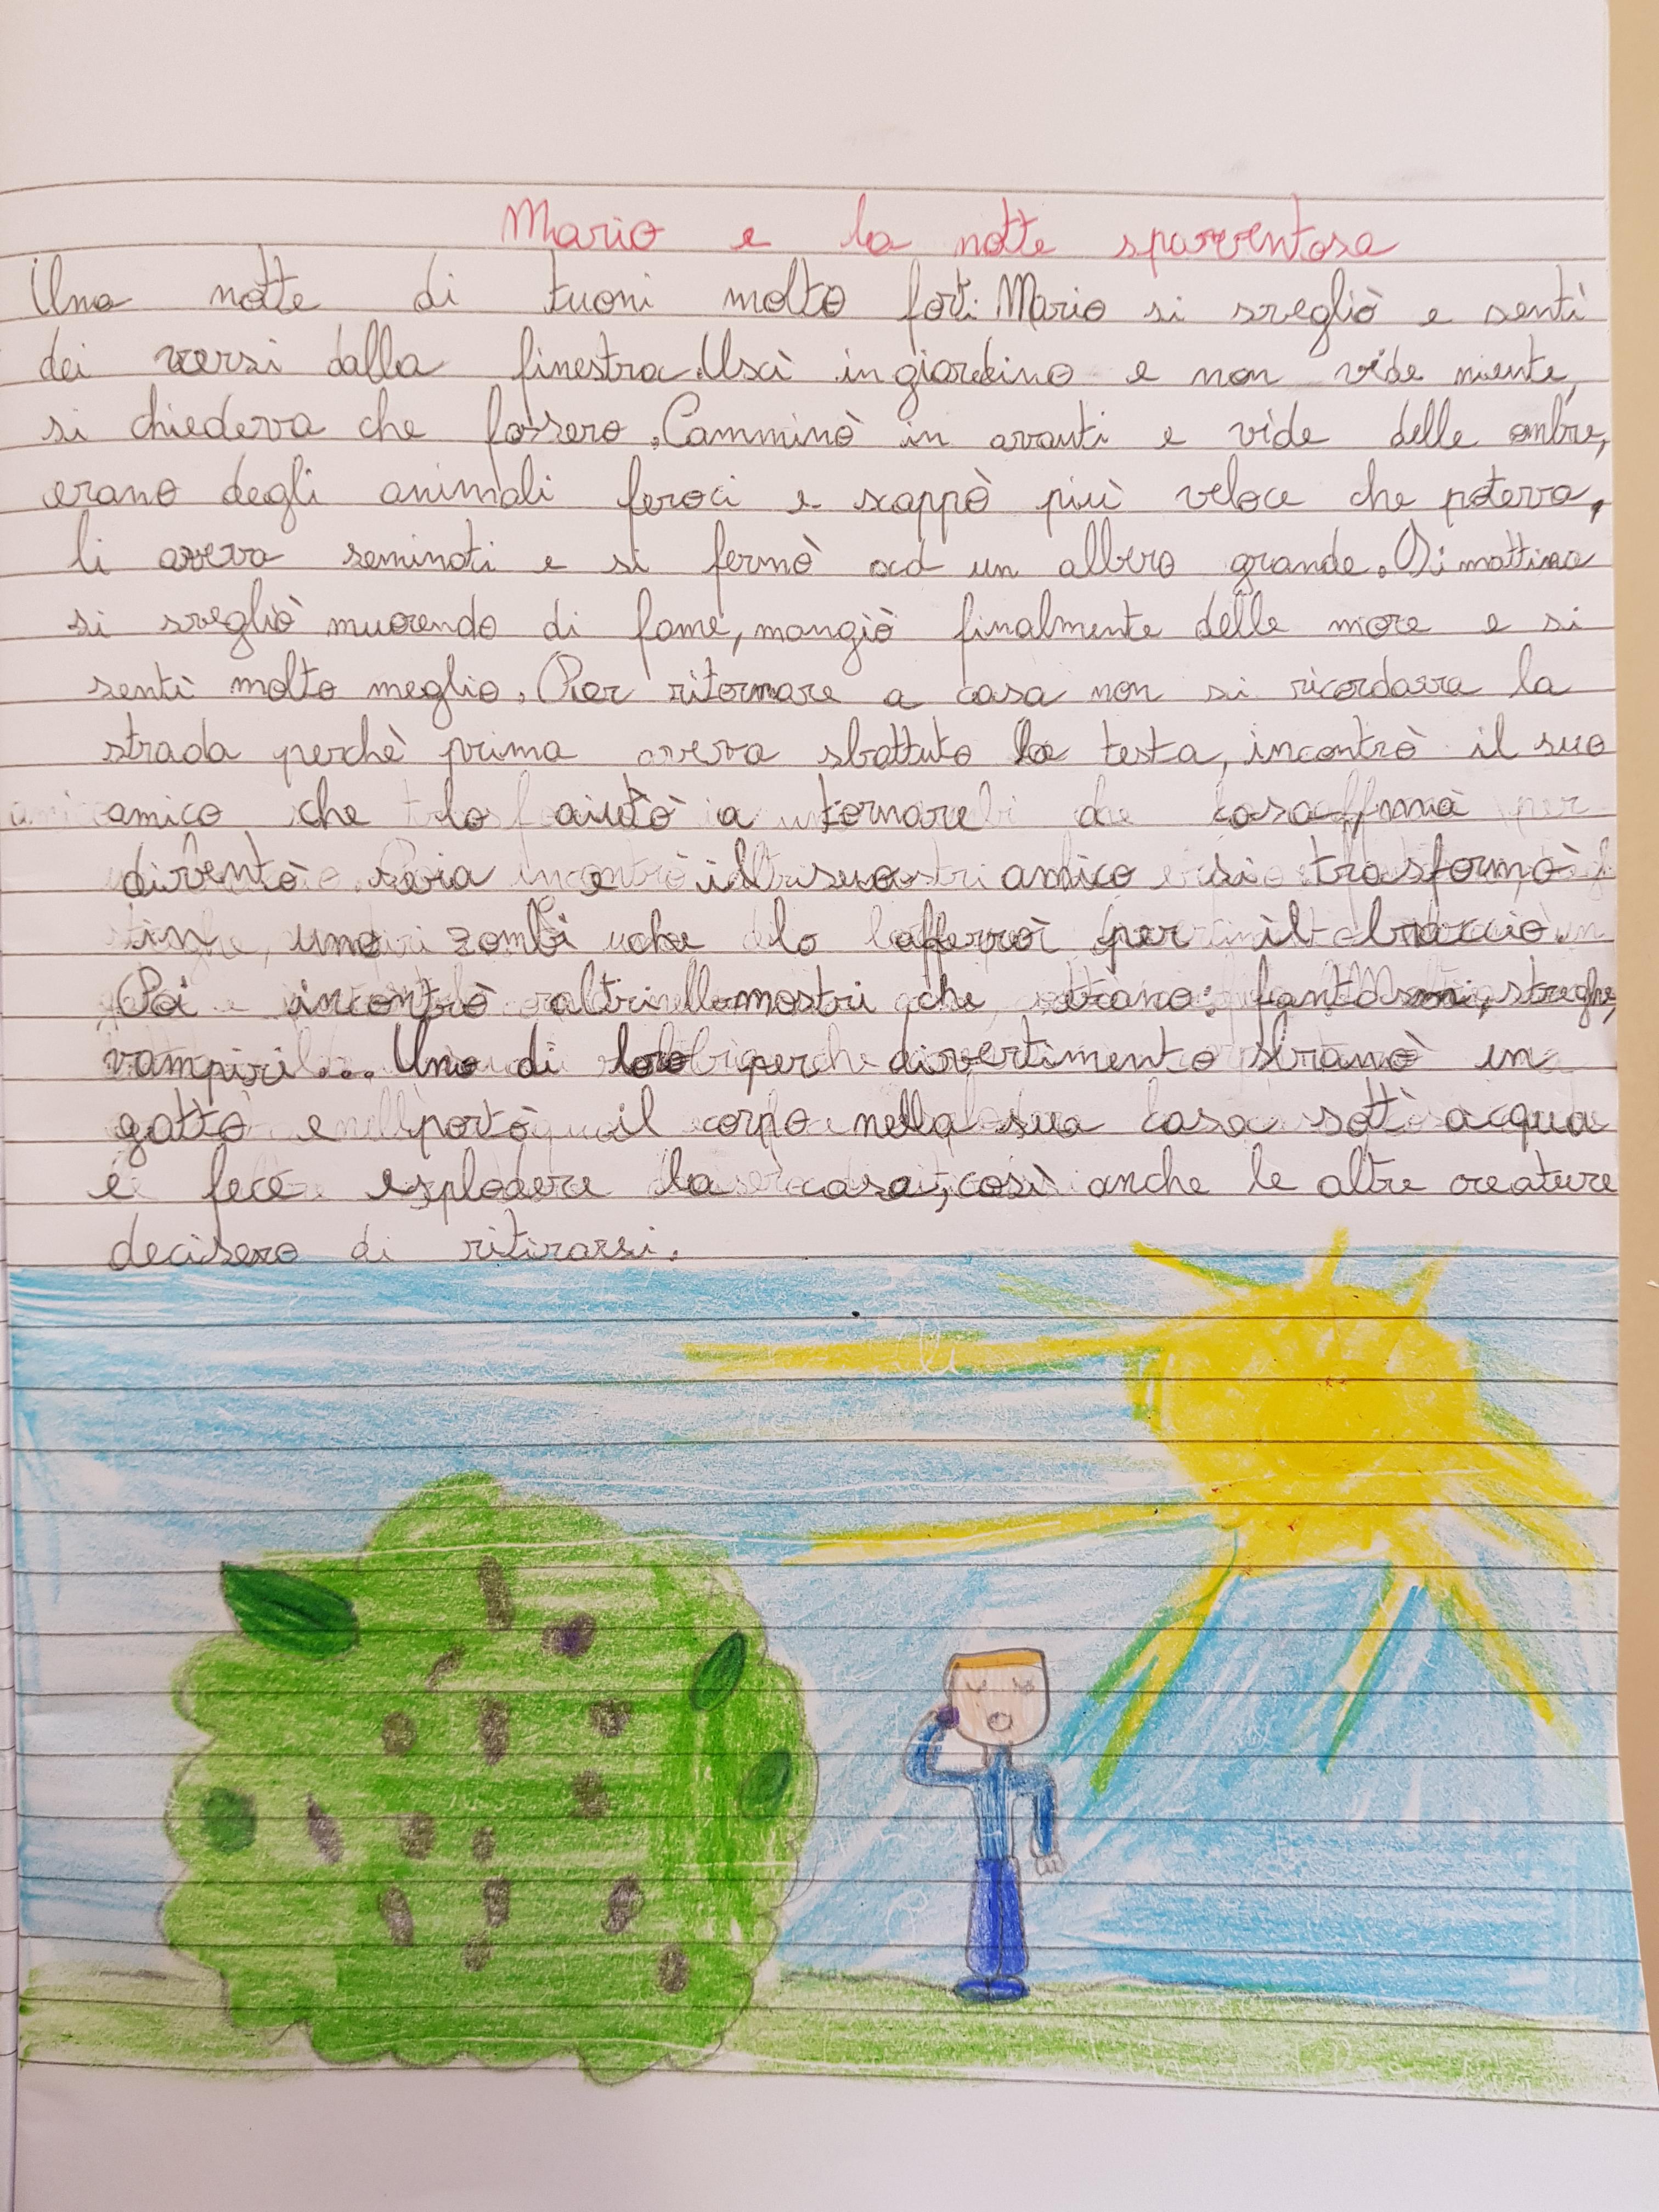 Mario e la notte spaventosa
Una notte di tuoni molto forti Mario si svegliò e sentì
dei versi dalla finestra. Uscì in giardino e non vide niente,
si chiedeva che fossero. Camminò in avanti e vide delle ombre,
erano degli animali feroci e scappò più veloce che poteva,
li aveva seminati e si fermò ad un albero grande. Di mattina
si svegliò muorendo di fame, mangiò finalmente delle more e si
sentì molto meglio. Per ritornare a casa non si ricordava la
strada perchè prima aveva sbattuto la testa, incontrò il suo
amico che lo aiutò a tornare a casa ma
diventò sera e il suo amico si trasformò
in uno zombi che lo afferrò per il braccio.
Poi incontrò altri mostri che erano: fantasmi, streghe,
vampiri... Uno di loro per divertimento sbranò un
gatto e portò il corpo nella sua casa sott'acqua
e fece esplodere la casa, così anche le altre creature
decisero di ritirarsi.